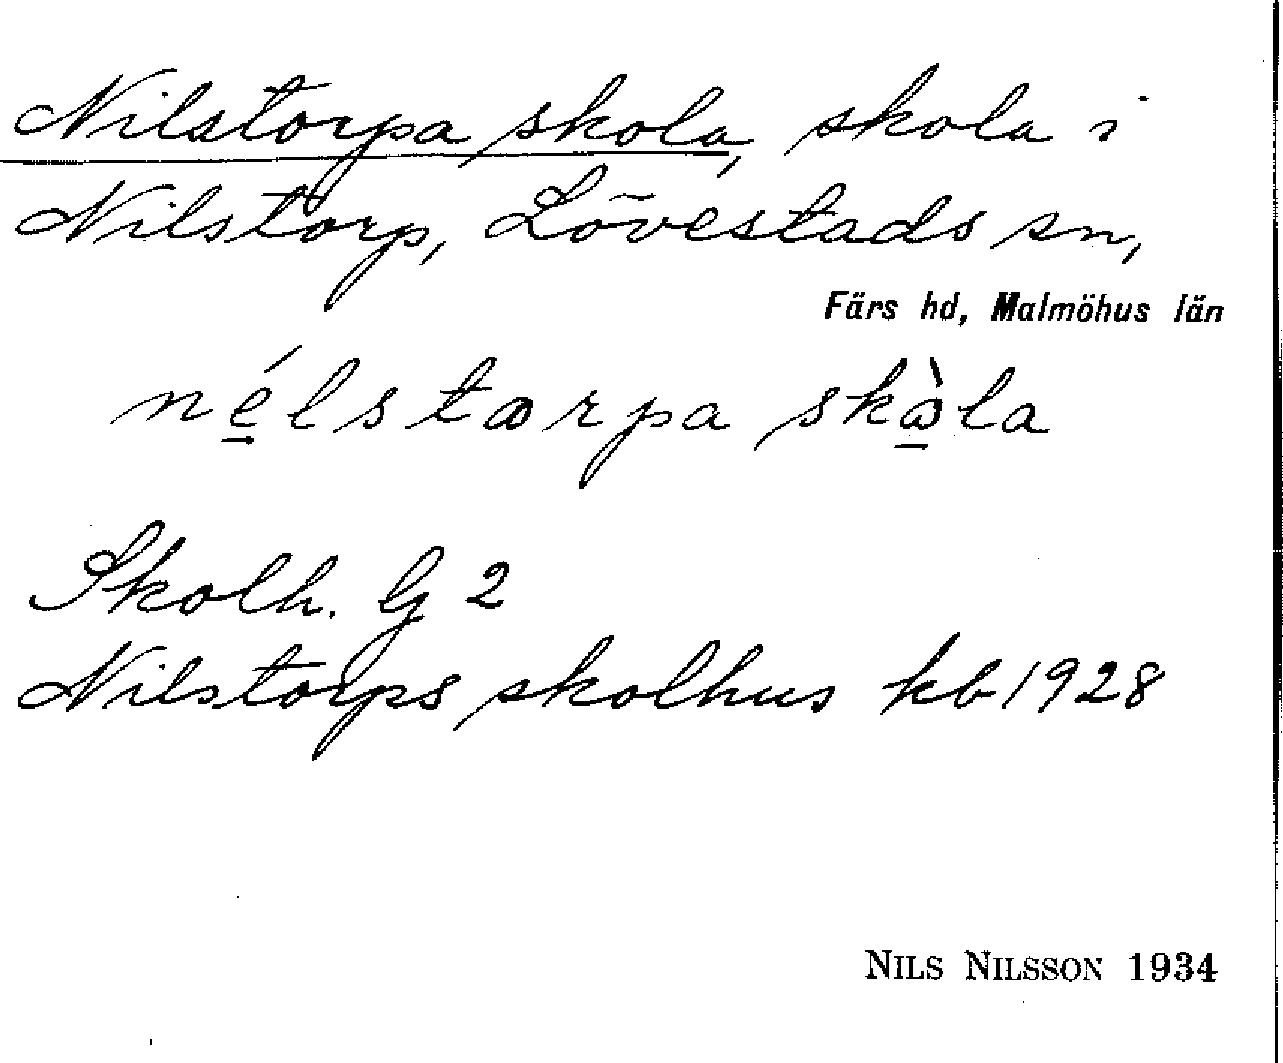 Nilstorpa skola, skola i
Nilstorp, Lövestads sn,
Färs hd, Malmöhus län
né̠lstꝏrpa skꝏ̠̀la
Skolh. G 2
Nilstorps skolhus kb 1928
NILS NILSSON 1934